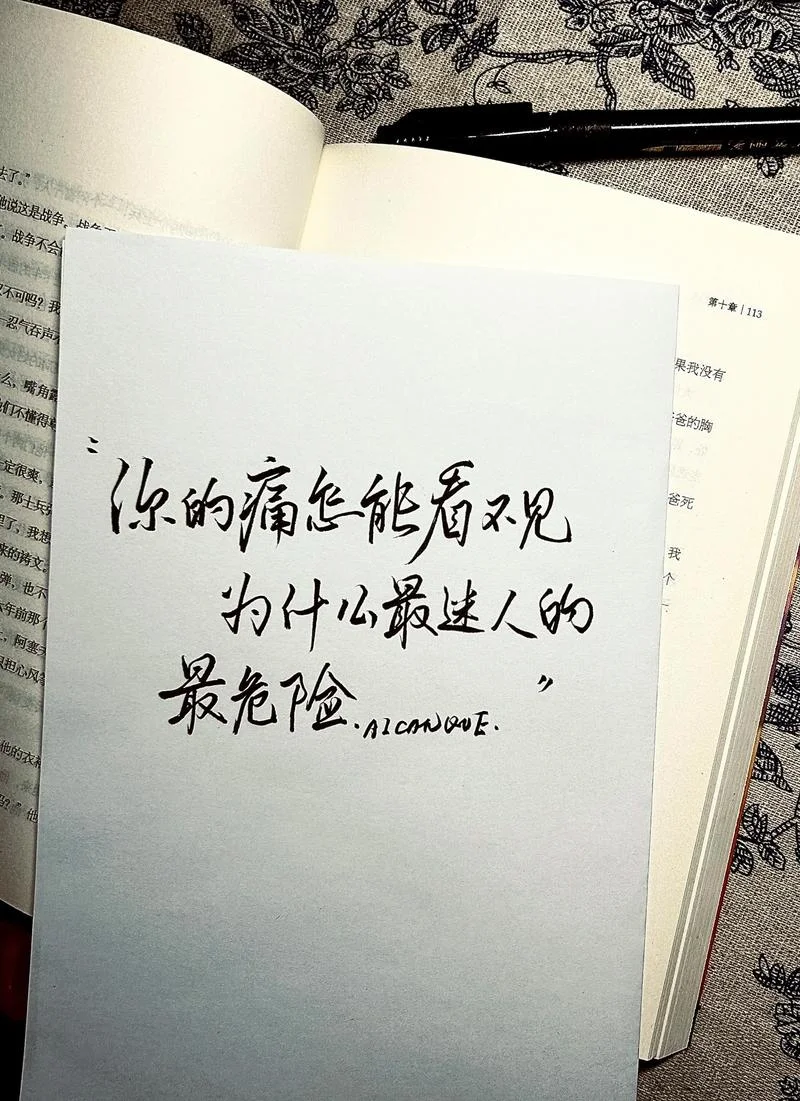 去了。”
他说这是战争。战争
战争不会
不可吗？我
忍气吞声
么，嘴角露
他们不懂得尊
定很爽
那士兵
里了，我想
来的诗文
弹，也不
六年前那个
，阿塞
只担心风筝
他的衣衫
吗？”他
第十章 | 113
果我没有
爸爸的胸
爸死
我
个
“你的痛怎能看不见
为什么最迷人的
最危险. AICANQUE. ”